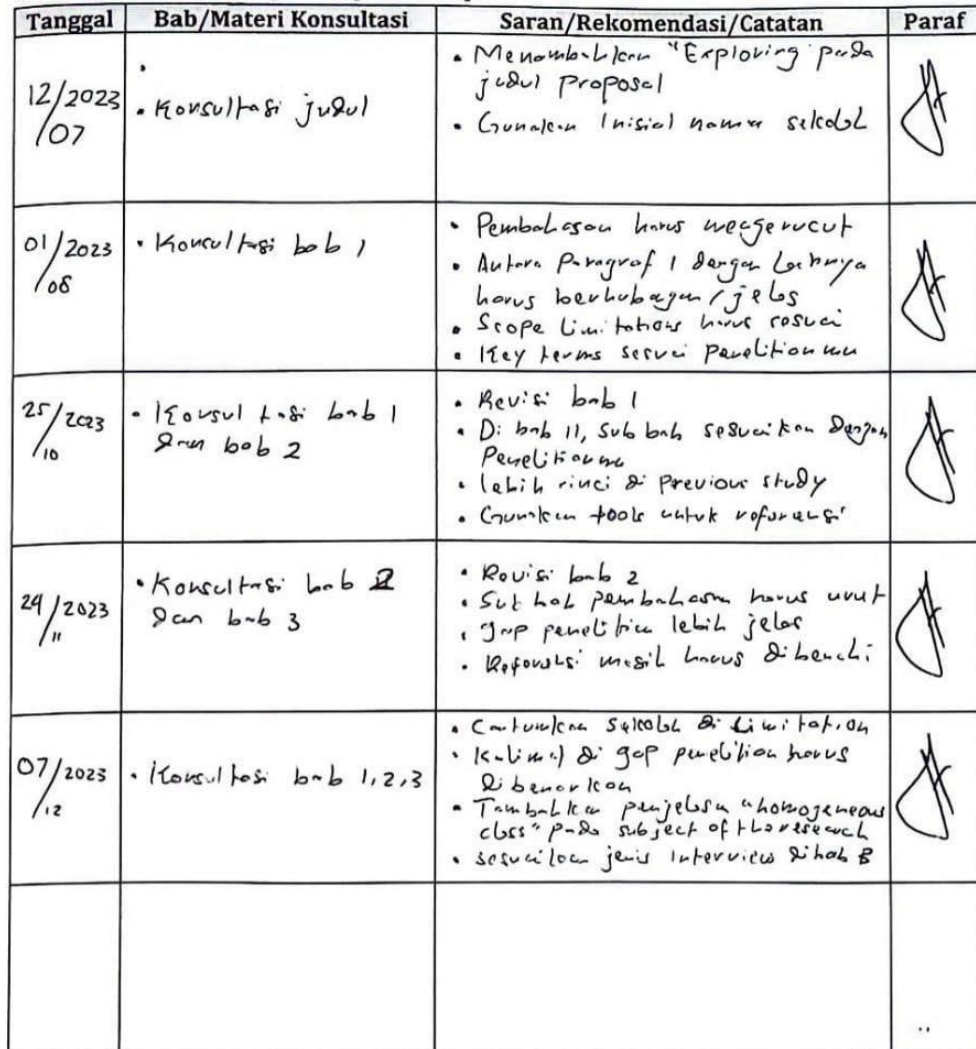 Tanggal Bab/Materi Konsultasi Saran/Rekomendasi/Catatan Paraf
12/2023/07
• Konsultasi judul
• Menambahkan "Exploring pada
judul proposal
• Gunakan Inisial nama sekolah
01/2023/08
• Konsultasi bab 1
• Pembahasan harus mengerucut
• Antara Paragraf 1 dengan lainnya
harus berhubungan / jelas
• Scope limitations harus sesuai
• Key terms sesuai penelitianmu
25/2023/10
• Konsultasi bab 1
dan bab 2
• Revisi bab 1
• Di bab 11, sub bab sesuaikan dengan
Penelitianmu
• lebih rinci di previous study
• Gunakan tools untuk referensi
24/2023/11
• Konsultasi bab 2
dan bab 3
• Revisi bab 2
• Sub bab pembahasan harus urut
• gap penelitian lebih jelas
• Referensi masih harus dibenahi
07/2023/12
• Konsultasi bab 1,2,3
• Cantumkan sekolah di Limitation
• Kalimat di gap penelitian harus
dibenarkan
• Tambahkan penjelasan "homogeneous
class" pada subject of the research
• sesuaikan jenis interview di bab